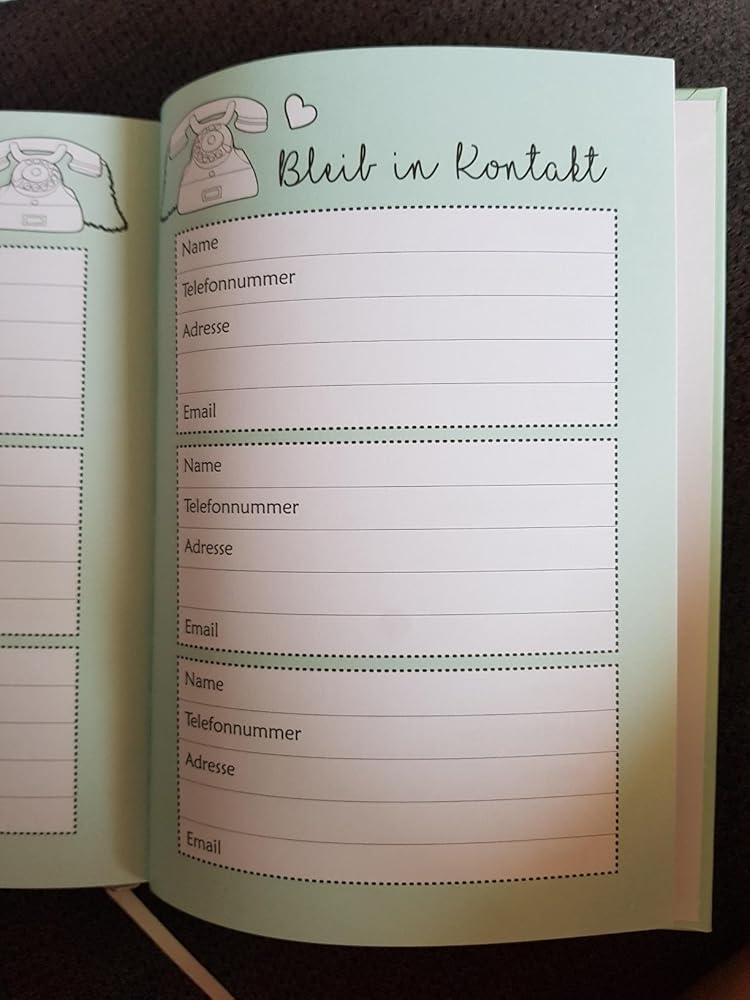 Bleib in Kontakt
Name
Telefonnummer
Adresse
Email
Name
Telefonnummer
Adresse
Email
Name
Telefonnummer
Adresse
Email